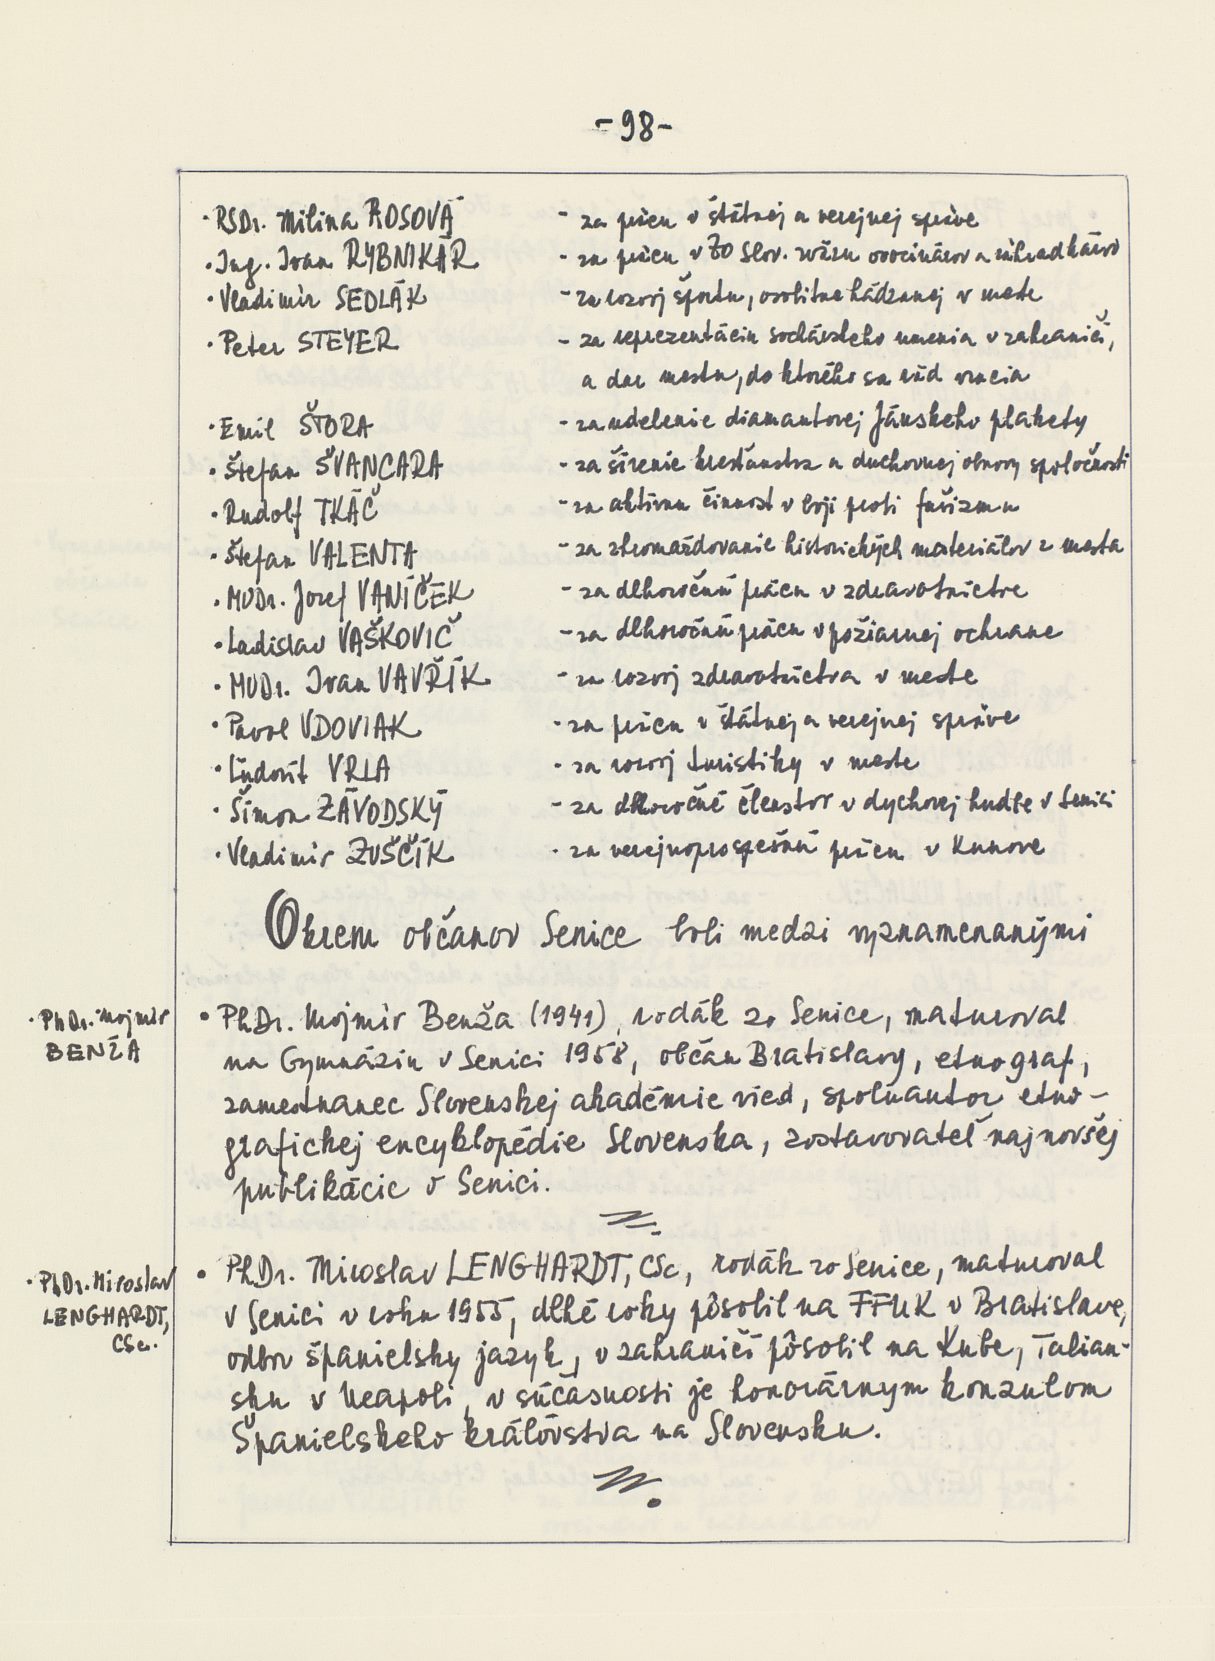 -98-
· RSDr. Milina ROSOVÁ - za prácu v štátnej a verejnej správe
· Ing. Ivan RYBNIKÁR - za prácu v ZO Slov. zväzu ovocinárov a záhradkárov
· Vladimír SEDLÁK - za rozvoj športu, osobitne hádzanej v meste
· Peter STEYER - za reprezentáciu sochárskeho umenia v zahraničí,
a dar mestu, do ktorého sa rád vracia
· Emil ŠTORA - za udelenie diamantovej Jánskeho plakety
· Štefan ŠVANCARA - za šírenie kresťanstva a duchovnej obnovy spoločnosti
· Rudolf TKÁČ - za aktívnu činnosť v boji proti fašizmu
· Štefan VALENTA - za zhromažďovanie historických materiálov z mesta
· MUDr. Jozef VANÍČEK - za dlhoročnú prácu v zdravotníctve
· Ladislav VAŠKOVIČ - za dlhoročnú prácu v požiarnej ochrane
· MUDr. Ivan VAVŘÍK - za rozvoj zdravotníctva v meste
· Pavol VDOVIAK - za prácu v štátnej a verejnej správe
· Ľudovít VRLA - za rozvoj turistiky v meste
· Šimon ZÁVODSKÝ - za dlhoročné členstvo v dychovej hudbe v Senici
· Vladimír ZUŠČÍK - za verejnoprospešnú prácu v Kunove
Okrem občanov Senice boli medzi vyznamenanými
· PhDr. Mojmír
BENŽA
• PhDr. Mojmír Benža (1941), rodák zo Senice, maturoval
na Gymnáziu v Senici 1958, občan Bratislavy, etnograf,
zamestnanec Slovenskej akadémie vied, spoluautor etno-
grafickej encyklopédie Slovenska, zostavovateľ najnovšej
publikácie o Senici.
· PhDr. Miroslav
LENGHARDT,
CSc.
• PhDr. Miroslav LENGHARDT, CSc, rodák zo Senice, maturoval
v Senici v roku 1955, dlhé roky pôsobil na FFUK v Bratislave,
odbor španielsky jazyk, v zahraničí pôsobil na Kube, Talian-
sku v Neapoli, v súčasnosti je honorárnym konzulom
Španielskeho kráľovstva na Slovensku.